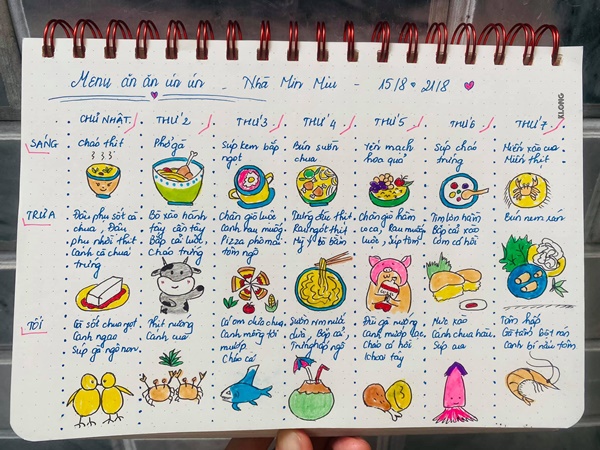 MENU ăn ăn ún ún - Nhà Min Miu - 15/8 - 21/8
KLONG
CHỦ NHẬT THỨ 2 THỨ 3 THỨ 4 THỨ 5 THỨ 6 THỨ 7
SÁNG
Cháo thịt
Phở gà
Súp kem bắp
ngọt
Bún sườn
chua
Yến mạch
hoa quả
Súp cháo
trứng
Miến xào cua
Miến thịt
TRƯA
Đậu phụ sốt cà
chua, Đậu
phụ nhồi thịt
Canh cà chua
trứng
Bò xào hành
tây cần tây
Bắp cải luộc,
Cháo trứng
Chân giò luộc
Canh rau muống
Pizza phô mai
tôm ngô
thịt
Rau ngót thịt
Mỳ Ý bò băm
Chân giò hầm
Rau muống
luộc, Súp tôm
Tim lợn hầm
Bắp cải xào
Cơm cá hồi
Bún nem rán
TỐI
Gà sốt chua ngọt
Canh ngao
Súp gà ngô non
Thịt nướng
Canh cua
Cá om dưa chua
Canh mồng tơi
mướp
Cháo cá
Sườn rim nước
dừa Bắp cải,
Đùi gà nướng
Canh mướp
Cháo cá hồi
khoai tây
Mực xào
Canh chua
Súp cua
Tôm hấp
Canh bí nấu tôm